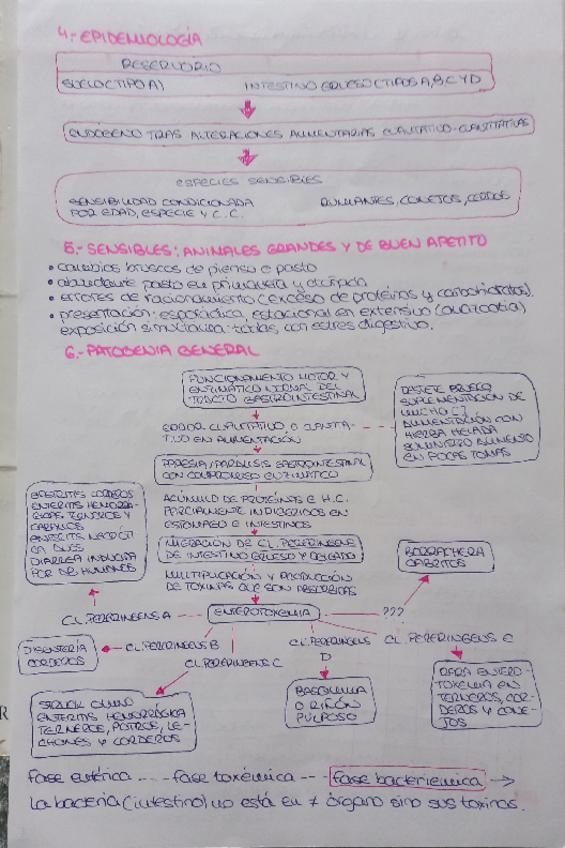 4.- EPIDEMIOLOGÍA
RESERVORIO
SUELO (TIPO A)
INTESTINO GRUESO (TIPOS A, B, C Y D)
ENDÓGENO TRAS ALTERACIONES ALIMENTARIAS CUALITATIVO-CUANTITATIVAS
ESPECIES SENSIBLES
SENSIBILIDAD CONDICIONADA
POR EDAD, ESPECIE Y C.C.
RUMIANTES, CONEJOS, CERDOS
5.- SENSIBLES: ANIMALES GRANDES Y DE BUEN APETITO
• cambios bruscos de pienso o pasto
• abundante pasto en primavera y otoñada
• errores de racionamiento (exceso de proteínas y carbohidratos).
• presentación: esporádica, estacional en extensivo
exposición simultánea: todas, con estrés digestivo.
6.- PATOGENIA GENERAL
FUNCIONAMIENTO MOTOR Y
ENZIMÁTICO NORMAL DEL
TRACTO GASTROINTESTINAL
DESTETE BRUSCO
SUPLEMENTACIÓN DE
MUCHO
ALIMENTACIÓN CON
HIERBA HELADA
SUMINISTRO ALIMENTO
EN POCAS TOMAS
ERROR CUALITATIVO O CUANTITA-
TIVO EN ALIMENTACIÓN
PARESIA/PARÁLISIS GASTROINTESTINAL
CON COMPROMISO ENZIMÁTICO
ACÚMULO DE PROTEÍNAS E H.C.
PARCIALMENTE INDIGERIDOS EN
ESTÓMAGO E INTESTINOS
MIGRACIÓN DE CL. PERFRINGENS
DE INTESTINO GRUESO Y DELGADO
MULTIPLICACIÓN Y PRODUCCIÓN
DE TOXINAS QUE SON ABSORBIDAS
GASTRITIS CORDEROS
ENTERITIS HEMORRÁ-
GICAS TERNEROS Y
CABALLOS
ENTERITIS NECRÓTI
CA AVES
DIARREA INDUCIDA
POR HUMANOS
BORRACHERA
CABRITOS
CL. PERFRINGENS A
ENTEROTOXEMIA
???
DISENTERÍA
CORDEROS
CL. PERFRINGENS B
CL. PERFRINGENS C
CL. PERFRINGENS
D
CL. PERFRINGENS E
STRUCK OVINO
ENTERITIS HEMORRÁGICA
TERNEROS, POTROS, LE-
CHONES Y CORDEROS
BASQUILLA
O RIÑÓN
PULPOSO
RARA ENTERO-
TOXEMIA EN
TERNEROS, COR-
DEROS Y CONE-
JOS
R
fase entérica ... - fase toxémica -- - fase bacteriémica →
La bacteria (intestino) no está en ≠ órgano sino sus toxinas.